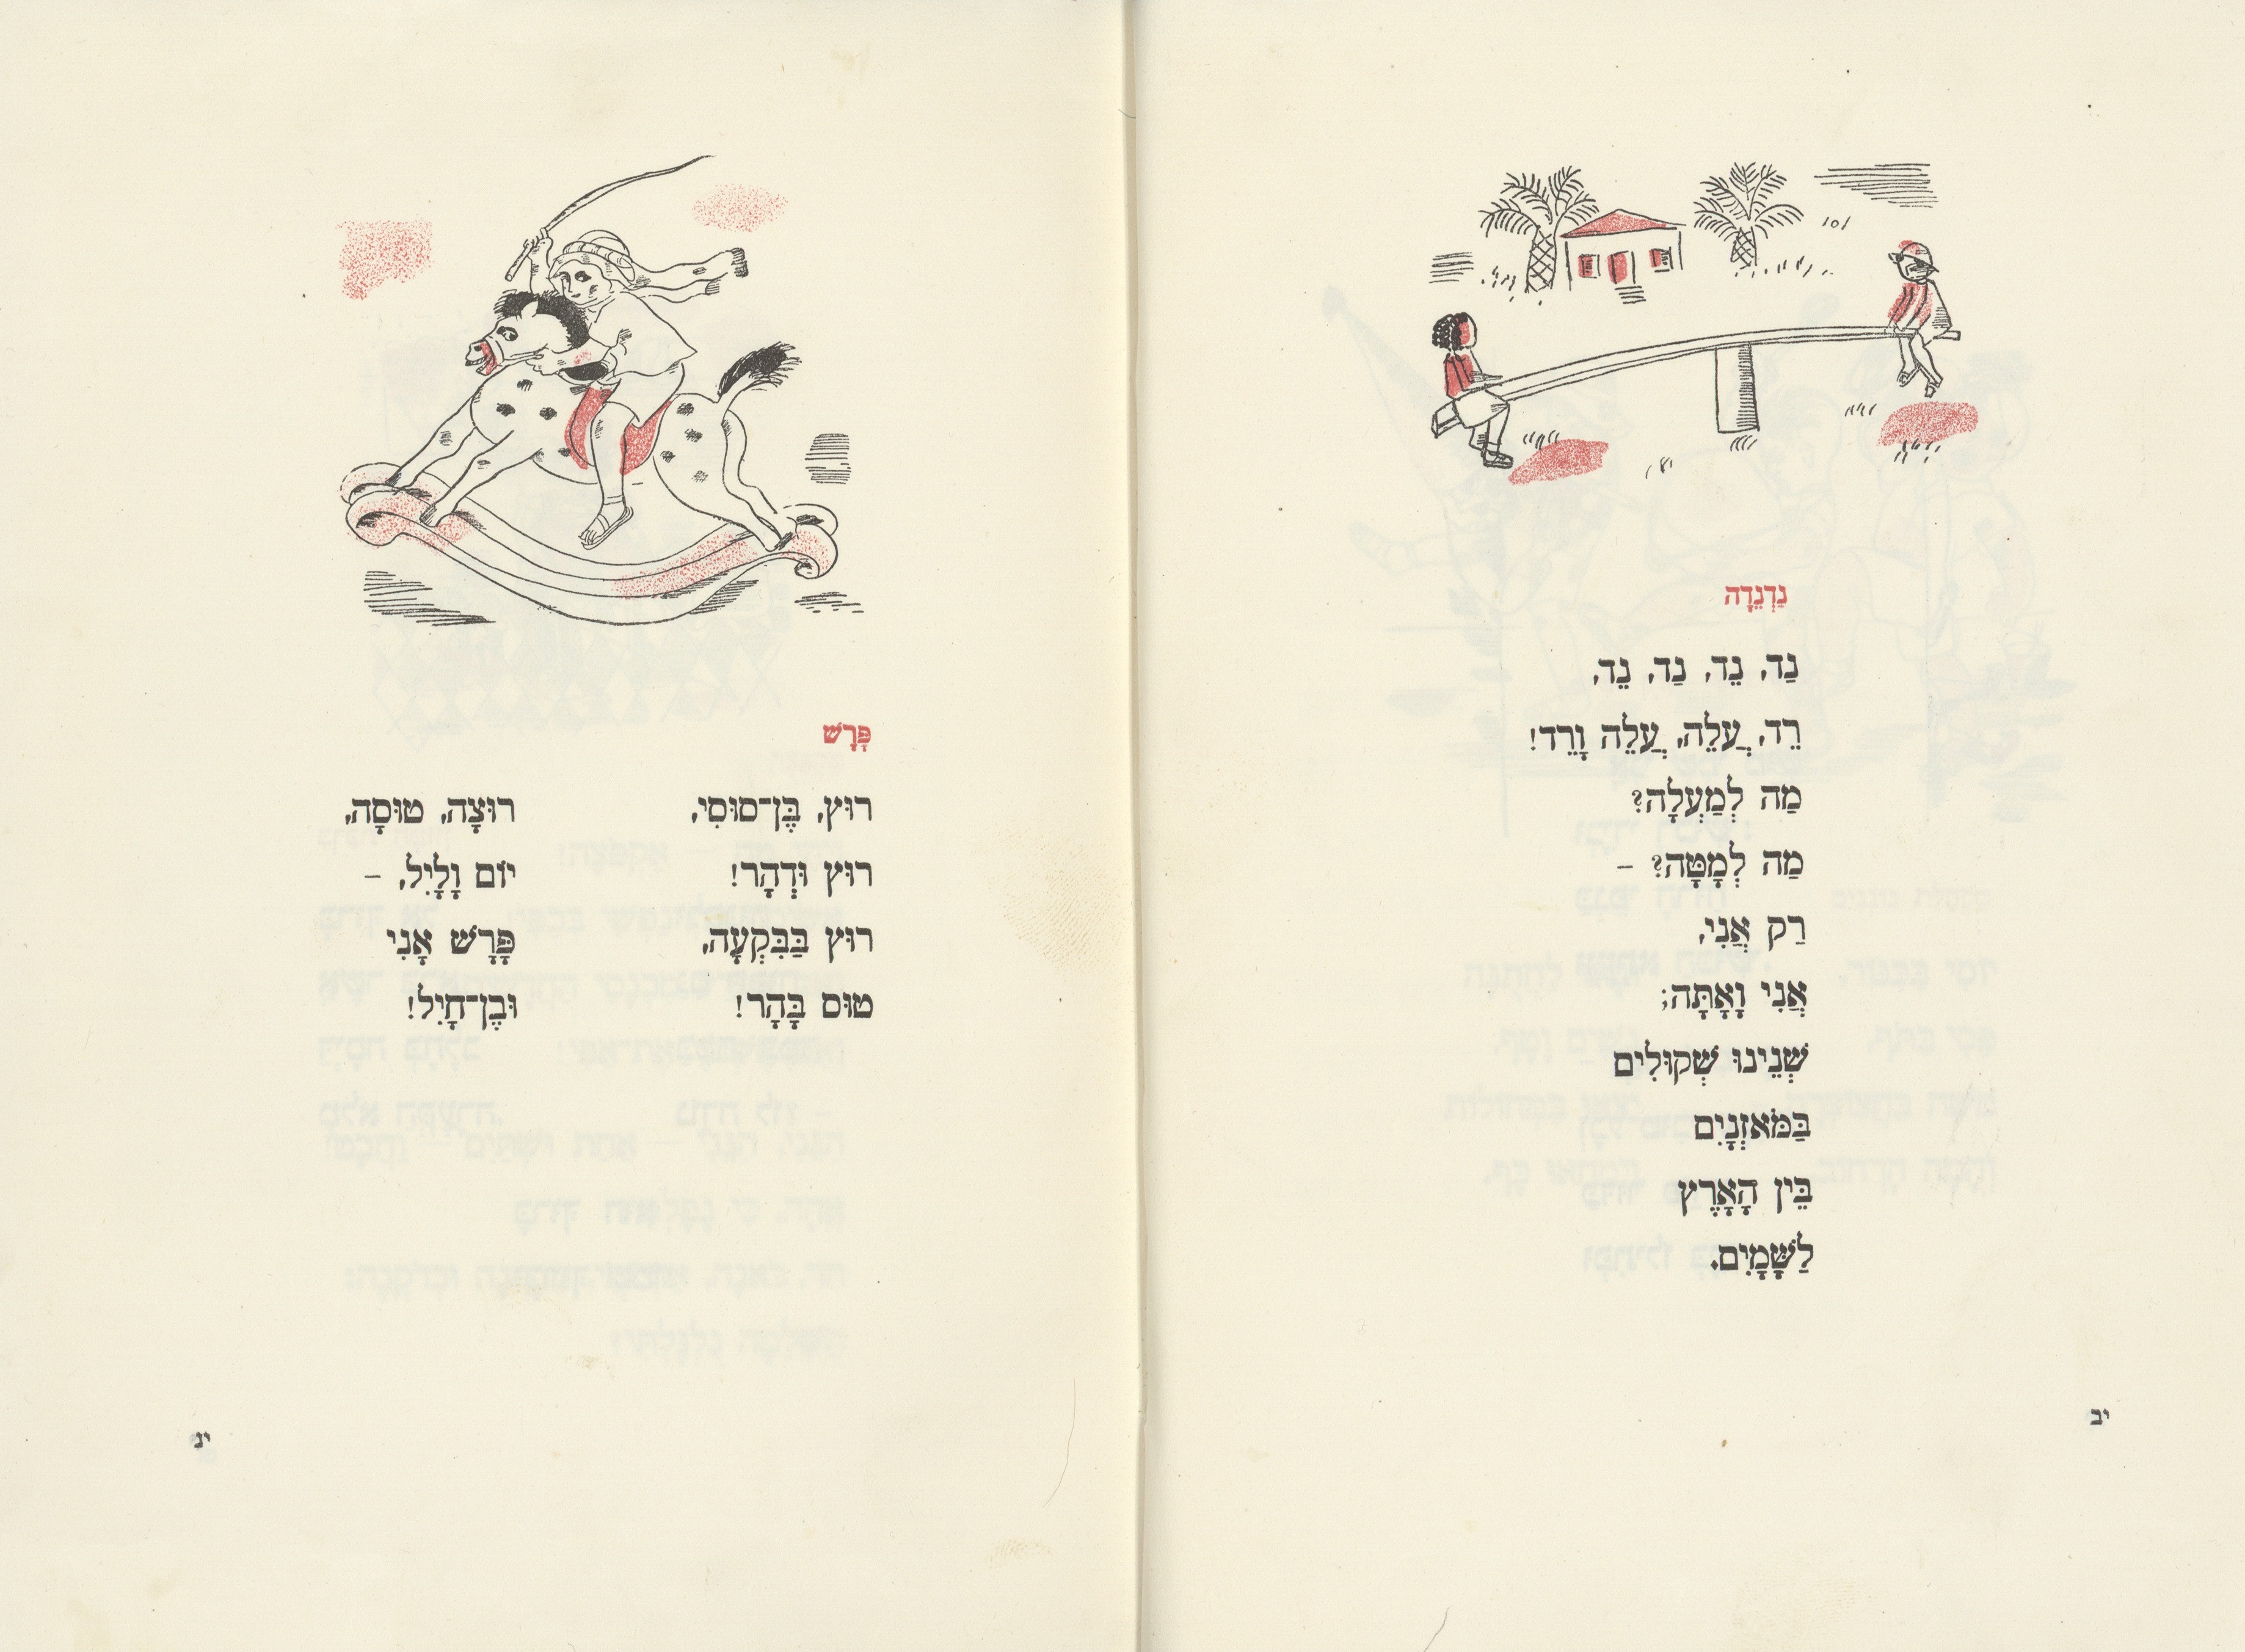 נַדְנֵדָה
נַד, נֵד, נַד, נֵד,
רֵד, עֲלֵה, עֲלֵה וָרֵד!
מַה לְמַעְלָה?
מַה לְמָטָּה? –
רַק אֲנִי,
אֲנִי וָאָתָּה;
שְׁנֵינוּ שְׁקוּלִים
בַּמֹּאזְנָיִם
בֵּין הָאָרֶץ
לַשָּׁמָיִם.
יב
פָּרָשׁ
רוּץ, בֶּן־סוּסִי,
רוּץ וּדְהָר!
רוּץ בַּבִּקְעָה,
טוּס בָּהָר!
רוּצָה, טוּסָה,
יוֹם וָלָיִל, –
פָּרָשׁ אָנִי
וּבֶן־חָיִל!
יג